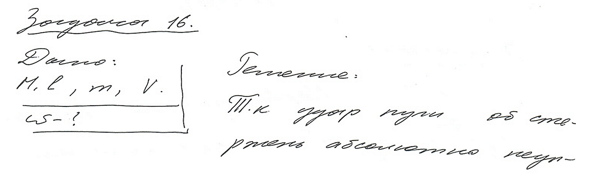 Задача 16.
Дано:
M, l, m, V.
ω-?
Решение:
Т.к удар пули об сте-
ржень абсолютно неуп-